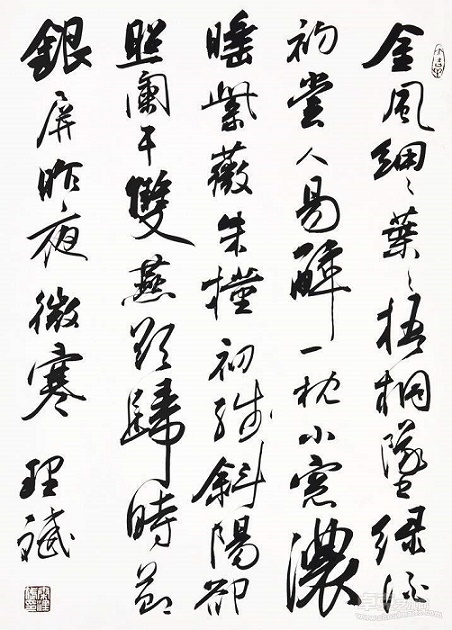 金風細〻葉〻梧桐墜緑酒
初嘗人易醉一枕小窓濃
睡紫薇朱槿初残斜陽却
照闌干雙燕欲歸時節
銀屏昨夜微寒 理斌